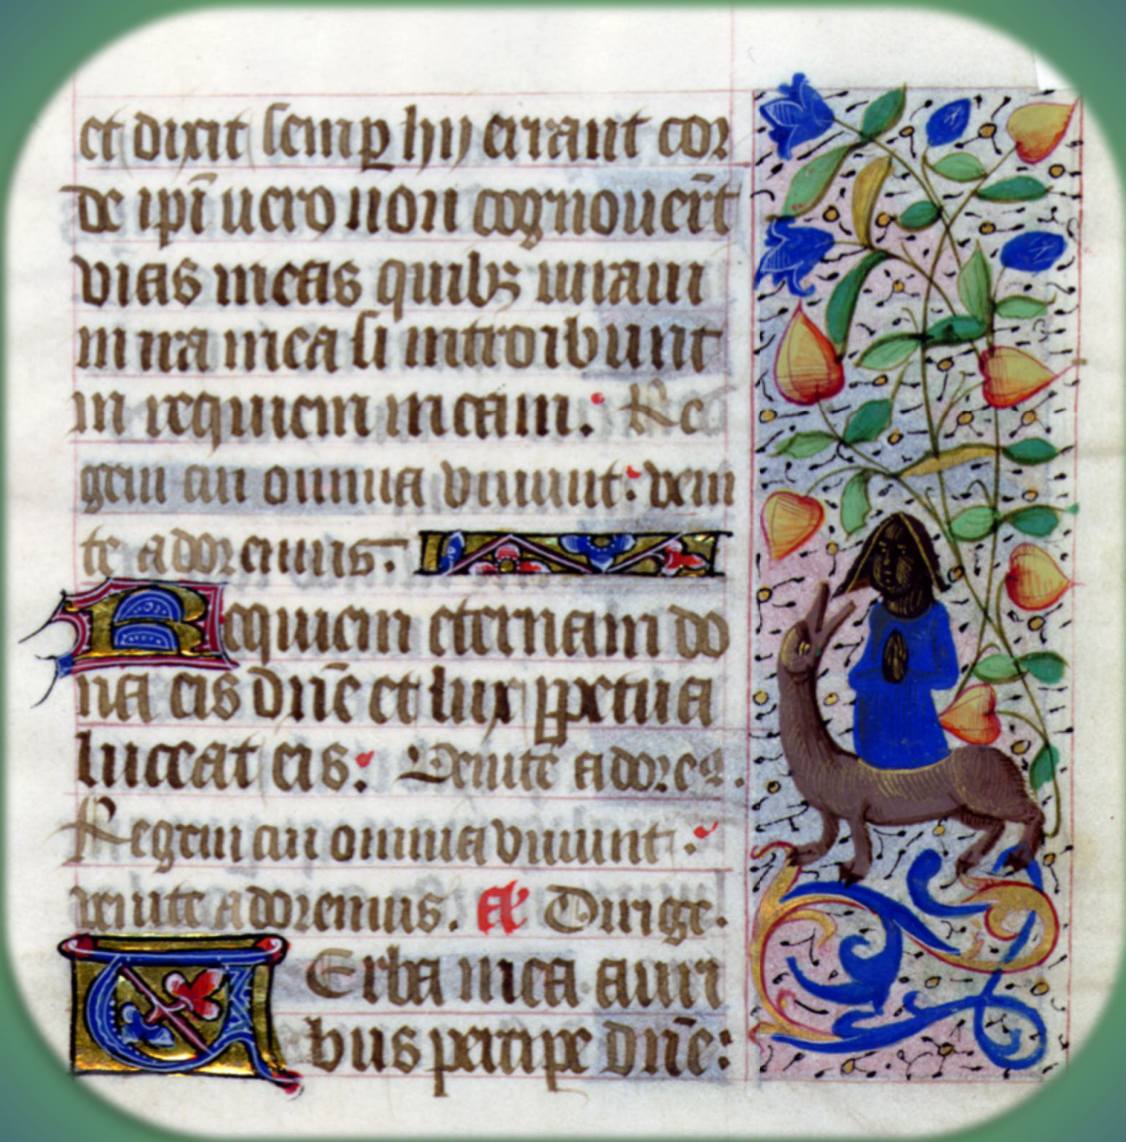 et dixit semp̱ hij errant cor
de ipī uero non cognouer̄t
vias meas quibꝫ iuraui
in ira mea si introibunt
in requiem meam. Re
gem cui omnia viuunt: veni
te adoremus.
Requiem eternam do
na eis dn̄e et lux ꝑpetua
luceat eis: Venite adorem9.
Regem cui omnia viuunt.
venite adoremus. añ Dirige.
VErba mea auri
bus percipe dn̄e: